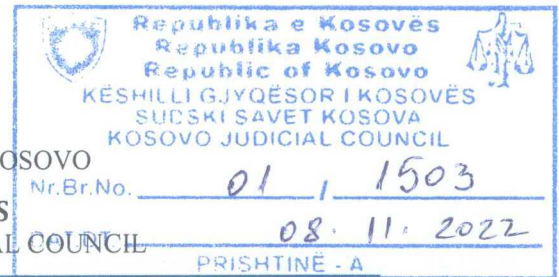 Republika e Kosovës
Republika Kosovo
Republic of Kosovo
KËSHILLI GJYQËSOR I KOSOVËS
SUDSKI SAVET KOSOVA
KOSOVO JUDICIAL COUNCIL
OSOVO
Nr.Br.No. 01 / 1503
S
08. 11. 2022
AL COUNCIL
PRISHTINË - A